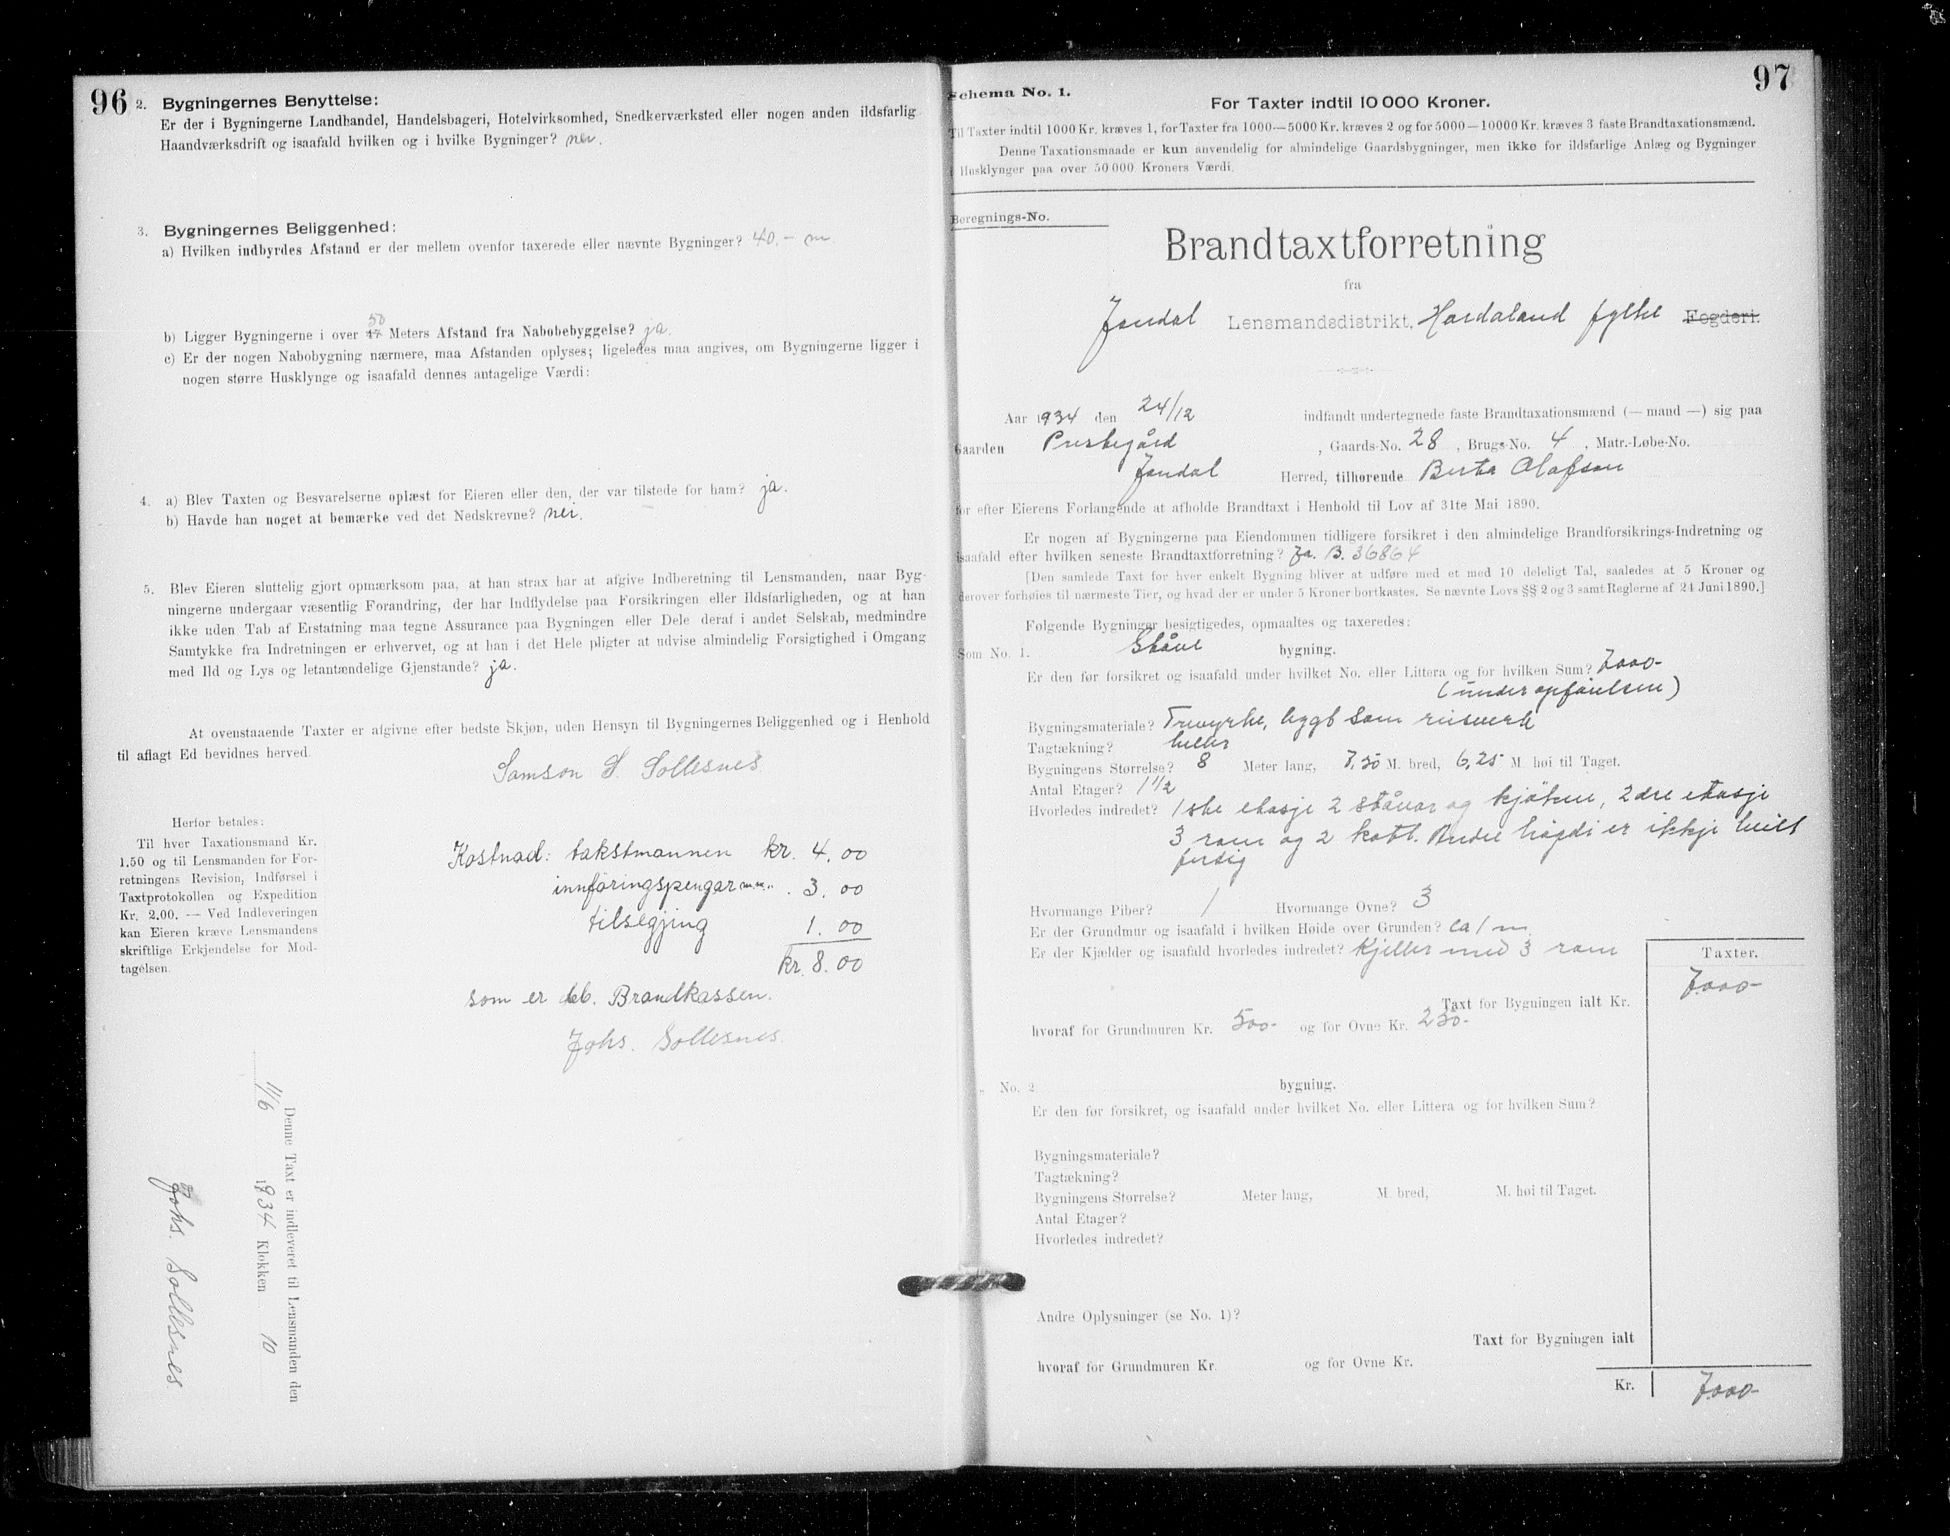 96
2. Bygningernes Benyttelse:
Er der i Bygningerne Landhandel, Handelsbageri, Hotelvirksomhed, Snedkerværksted eller nogen anden ildsfarlig
Haandværksdrift og isaafald hvilken og i hvilke Bygninger? nei.
3. Bygningernes Beliggenhed:
a) Hvilken indbyrdes Afstand er der mellem ovenfor taxerede eller nævnte Bygninger? 40.- m.
50
b) Ligger Bygningerne i over Meters Afstand fra Nabobebyggelse? ja.
c) Er der nogen Nabobygning nærmere, maa Afstanden oplyses; ligeledes maa angives, om Bygningerne ligger i
nogen større Husklynge og isaafald dennes antagelige Værdi:
4. a) Blev Taxten og Besvarelserne oplæst for Eieren eller den, der var tilstede for ham? ja.
b) Havde han noget at bemærke ved det Nedskrevne? nei.
5. Blev Eieren sluttelig gjort opmærksom paa, at han strax har at afgive Indberetning til Lensmanden, naar Byg-
ningerne undergaar væsentlig Forandring, der har Indflydelse paa Forsikringen eller Ildsfarligheden, og at han
ikke uden Tab af Erstatning maa tegne Assurance paa Bygningen eller Dele deraf i andet Selskab, medmindre
Samtykke fra Indretningen er erhvervet, og at han i det Hele pligter at udvise almindelig Forsigtighed i Omgang
med Ild og Lys og letantændelige Gjenstande? ja.
At ovenstaaende Taxter er afgivne efter bedste Skjøn, uden Hensyn til Bygningernes Beliggenhed og i Henhold
til aflagt Ed bevidnes herved.
Samson S. Sollesnes
Herfor betales:
Til hver Taxationsmand Kr.
1.50 og til Lensmanden for For-
retningens Revision, Indførsel i
Taxtprotokollen og Expedition
Kr. 2.00. — Ved Indleveringen
kan Eieren kræve Lensmandens
skriftlige Erkjendelse for Mod-
tagelsen.
Kostnad: takstmannen kr. 4.00
innføringspengar 3.00
tilsegjing 1.00
kr. 8.00
som er deb. Brandkassen.
Johs. Sollesnes.
Denne Taxt er indleveret til Lensmanden den
11/6 1934 Klokken 10
Johs. Sollesnes.
97
Schema No. 1.
For Taxter indtil 10 000 Kroner.
Til Taxter indtil 1000 Kr. kræves 1, for Taxter fra 1000—5000 Kr. kræves 2 og for 5000—10000 Kr. kræves 3 faste Brandtaxationsmænd.
Denne Taxationsmaade er kun anvendelig for almindelige Gaardsbygninger, men ikke for ildsfarlige Anlæg og Bygninger
i Husklynger paa over 50 000 Kroners Værdi.
Beregnings-No.
Brandtaxtforretning
fra
Jondal Lensmandsdistrikt, Hordaland fylke Fogderi.
Aar 1934 den 24/12 indfandt undertegnede faste Brandtaxationsmænd (— mand —) sig paa
Gaarden Prestegård, Gaards-No. 28, Brugs-No. 4, Matr.-Løbe-No.
Jondal Herred, tilhørende Berta Olafson
for efter Eierens Forlangende at afholde Brandtaxt i Henhold til Lov af 31te Mai 1890.
Er nogen af Bygningerne paa Eiendommen tidligere forsikret i den almindelige Brandforsikrings-Indretning og
isaafald efter hvilken seneste Brandtaxtforretning? Ja. B. 36864
[Den samlede Taxt for hver enkelt Bygning bliver at udføre med et med 10 deleligt Tal, saaledes at 5 Kroner og
derover forhøies til nærmeste Tier, og hvad der er under 5 Kroner bortkastes. Se nævnte Lovs §§ 2 og 3 samt Reglerne af 24 Juni 1890.]
Følgende Bygninger besigtigedes, opmaaltes og taxeredes:
Som No. 1. Ståve bygning.
Er den før forsikret og isaafald under hvilket No. eller Littera og for hvilken Sum? 7000-
(under opførelsen)
Bygningsmateriale? Trevyrke, bygt som reisverk
Tagtækning? heller
Bygningens Størrelse? 8 Meter lang, 7,50 M. bred, 6,25 M. høi til Taget.
Antal Etager? 1 1/2
Hvorledes indredet? 1ste etasje 2 ståvor og kjøken, 2dre etasje
3 rom og 2 kott. Andre høgdi er ikkje heilt
ferdig
Hvormange Piber? 1 Hvormange Ovne? 3
Er der Grundmur og isaafald i hvilken Høide over Grunden? ca 1 m
Er der Kjælder og isaafald hvorledes indredet? Kjeller med 3 rom
Taxter.
Taxt for Bygningen ialt Kr. 7000-
hvoraf for Grundmuren Kr. 500- og for Ovne Kr. 250-
„ No. 2 bygning.
Er den før forsikret, og isaafald under hvilket No. eller Littera og for hvilken Sum?
Bygningsmateriale?
Tagtækning?
Bygningens Størrelse? Meter lang, M. bred, M. høi til Taget.
Antal Etager?
Hvorledes indredet?
Andre Oplysninger (se No. 1)?
Taxt for Bygningen ialt
hvoraf for Grundmuren Kr. og for Ovne Kr.
Kr. 7000-